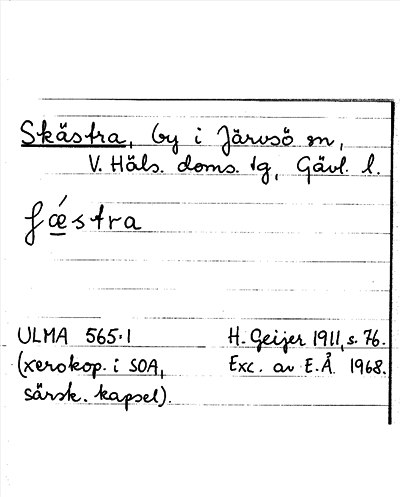 Skästra, by i Järvsö sn,
V. Häls. doms. tg, Gävl. l.
ʃǽstra
ULMA 565:1 H. Geijer 1911, s. 76.
(xerokop. i SOA, Exc. av E.Å. 1968.
särsk. kapsel).